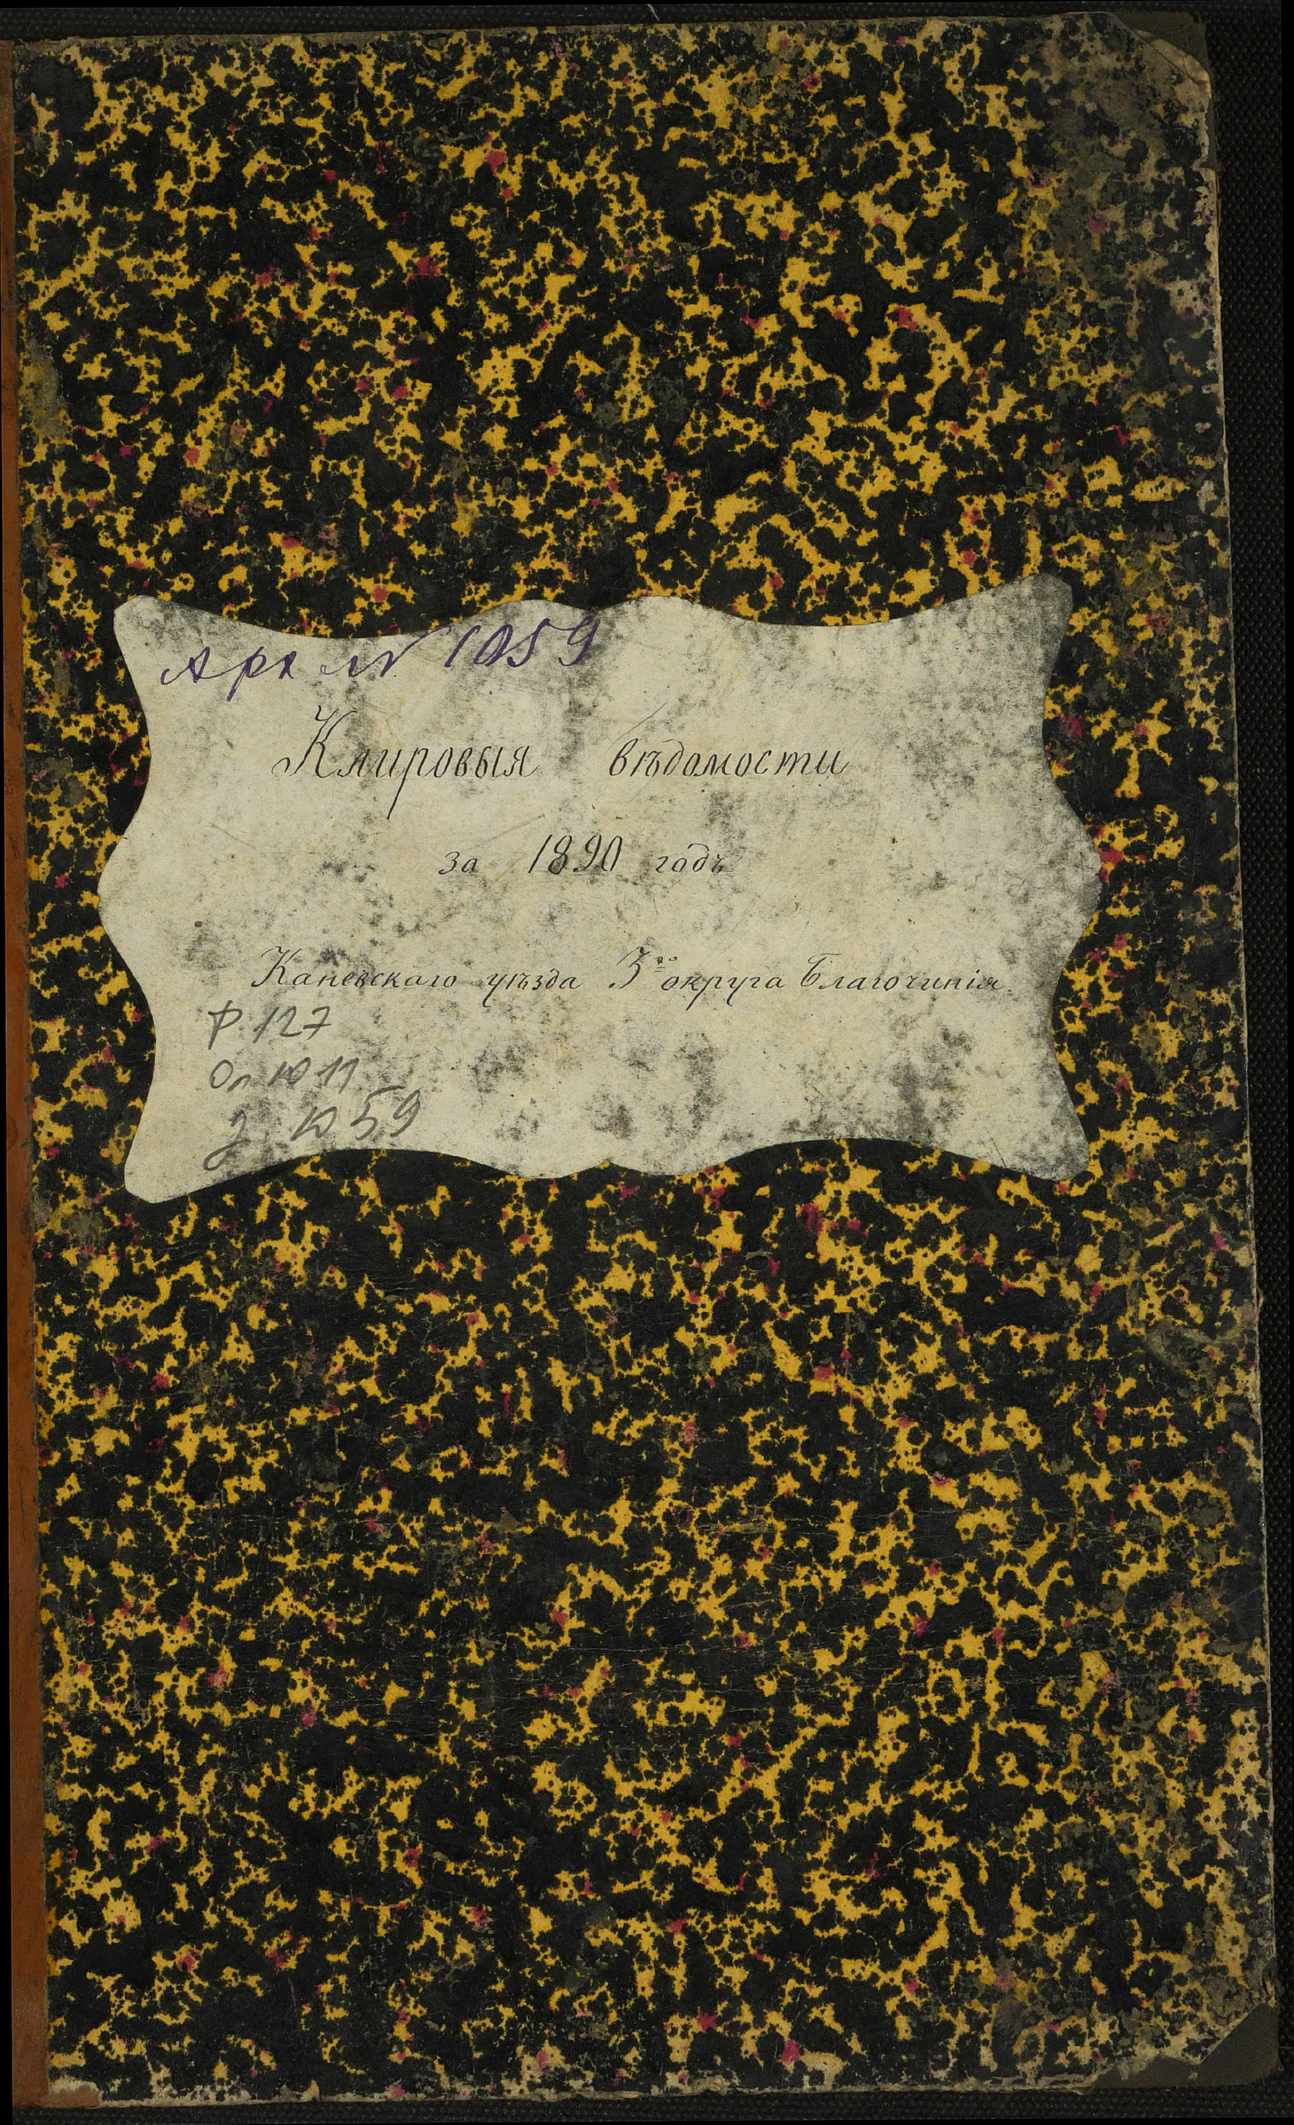 Арх № 1059
Клировыя вѣдомости
за 1890 годъ
Каневскаго уѣзда 3го округа Благочинія
Ф. 127
Оп 1011
д. 1059